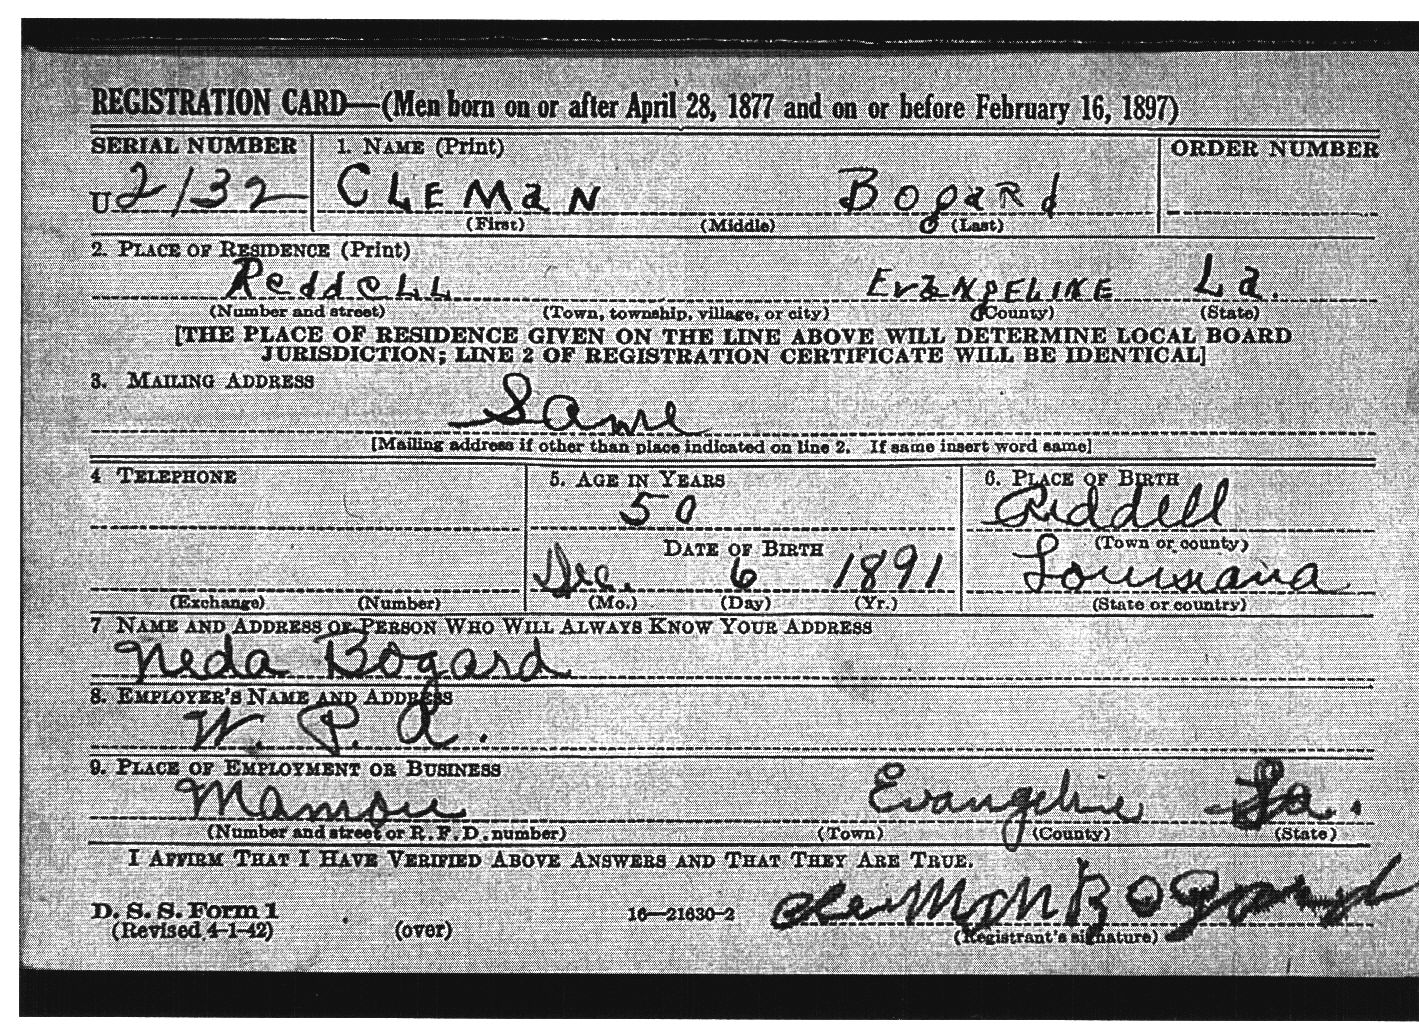 REGISTRATION CARD—(Men born on or after April 28, 1877 and on or before February 16, 1897)
SERIAL NUMBER 1. NAME (Print) ORDER NUMBER
U 2132 CLEMAN BogaRd
(First) (Middle) (Last)
2. PLACE OF RESIDENCE (Print)
ReddeLL EvaNgELINE La.
(Number and street) (Town, township, village, or city) (County) (State)
[THE PLACE OF RESIDENCE GIVEN ON THE LINE ABOVE WILL DETERMINE LOCAL BOARD
JURISDICTION; LINE 2 OF REGISTRATION CERTIFICATE WILL BE IDENTICAL]
3. MAILING ADDRESS
Same
[Mailing address if other than place indicated on line 2. If same insert word same]
4 TELEPHONE 5. AGE IN YEARS 6. PLACE OF BIRTH
50 Reddell
DATE OF BIRTH (Town or county)
Dec. 6 1891 Louisiana
(Exchange) (Number) (Mo.) (Day) (Yr.) (State or country)
7 NAME AND ADDRESS OF PERSON WHO WILL ALWAYS KNOW YOUR ADDRESS
Neda Bogard
8. EMPLOYER'S NAME AND ADDRESS
W. P. A.
9. PLACE OF EMPLOYMENT OR BUSINESS
Mamou Evangeline La.
(Number and street or R. F. D. number) (Town) (County) (State)
I AFFIRM THAT I HAVE VERIFIED ABOVE ANSWERS AND THAT THEY ARE TRUE.
Cleman Bogard
D. S. S. Form 1 16—21630-2
(Revised 4-1-42) (over) (Registrant's signature)